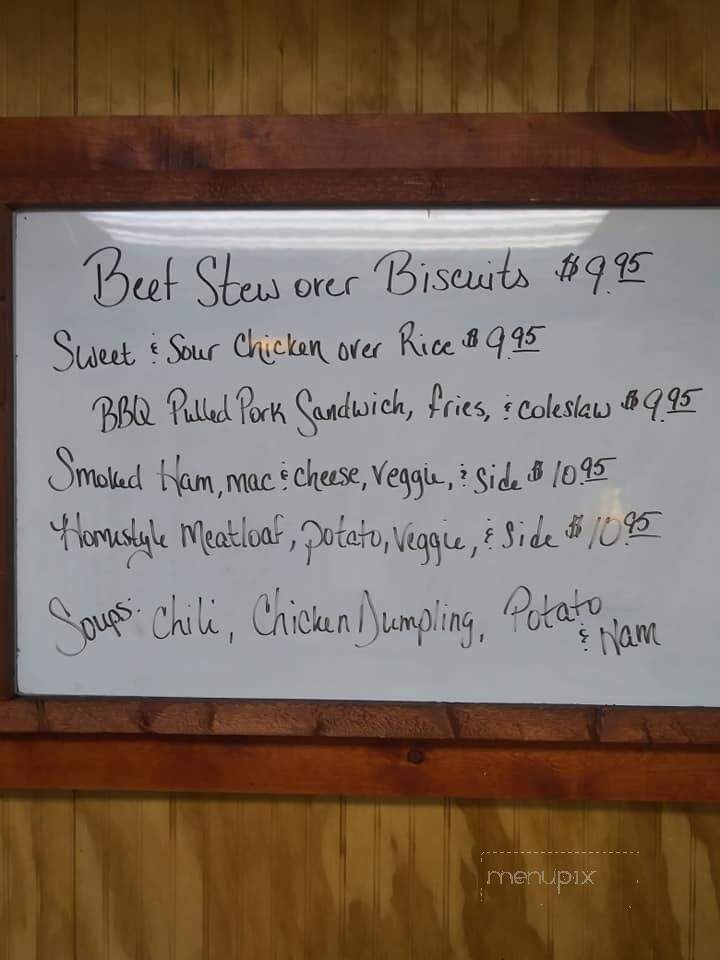 Beef Stew over Biscuits $9.95
Sweet & Sour Chicken over Rice $9.95
BBQ Pulled Pork Sandwich, fries, & coleslaw $9.95
Smoked Ham, mac & cheese, veggie, & side $10.95
Homestyle Meatloaf, potato, veggie, & side $10.95
Soups: chili, Chicken Dumpling, Potato
& Ham
menupix